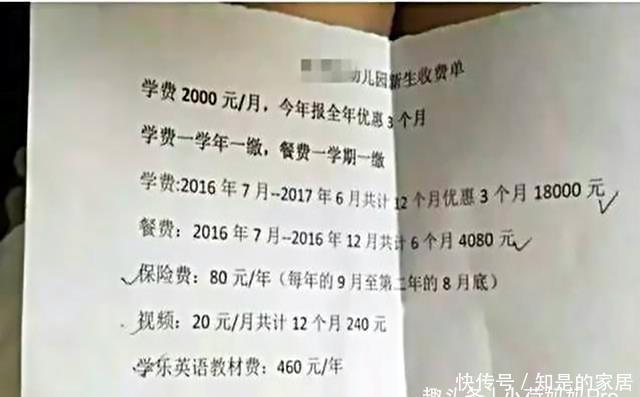 幼儿园新生收费单
学费 2000 元/月，今年报全年优惠 3 个月
学费一学年一缴，餐费一学期一缴
学费:2016 年 7 月--2017 年 6 月共计 12 个月优惠 3 个月 18000 元
餐费：2016 年 7 月--2016 年 12 月共计 6 个月 4080 元
保险费：80 元/年（每年的 9 月至第二年的 8 月底）
视频：20 元/月共计 12 个月 240 元
学乐英语教材费：460 元/年
快传号 / 知是的家居